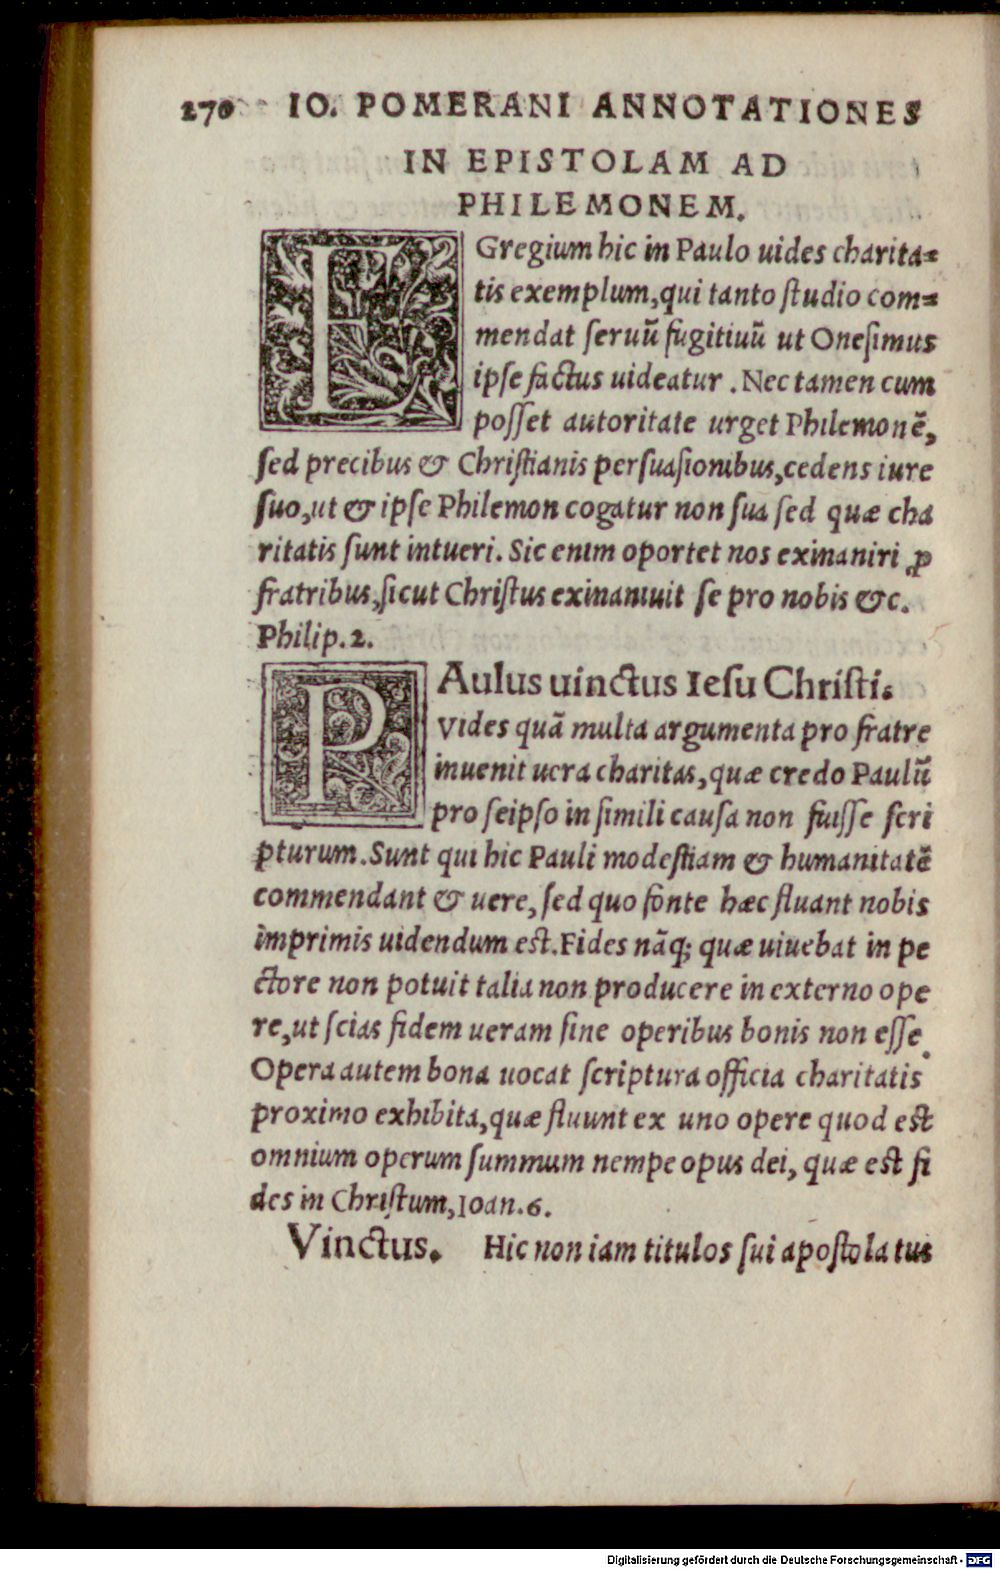 270 IO. POMERANI ANNOTATIONES
IN EPISTOLAM AD
PHILEMONEM.
EGregium hic in Paulo uides charita=
tis exemplum, qui tanto ſtudio com=
mendat ſeruū fugitiuū ut Oneſimus
ipſe factus uideatur. Nec tamen cum
poſſet autoritate urget Philemonē,
ſed precibus & Chriſtianis perſuaſionibus, cedens iure
ſuo, ut & ipſe Philemon cogatur non ſua ſed quæ cha
ritatis ſunt intueri. Sic enim oportet nos exinaniri ꝓ
fratribus, ſicut Chriſtus exinaniuit ſe pro nobis &c.
Philip. 2.
PAulus uinctus Ieſu Chriſti.
Vides quā multa argumenta pro fratre
inuenit uera charitas, quæ credo Paulū
pro ſeipſo in ſimili cauſa non fuiſſe ſcri
pturum. Sunt qui hic Pauli modeſtiam & humanitatē
commendant & uere, ſed quo fonte hæc fluant nobis
imprimis uidendum eſt. Fides nāq; quæ uiuebat in pe
ctore non potuit talia non producere in externo ope
re, ut ſcias fidem ueram ſine operibus bonis non eſſe.
Opera autem bona uocat ſcriptura officia charitatis
proximo exhibita, quæ fluunt ex uno opere quod eſt
omnium operum ſummum nempe opus dei, quæ eſt fi
des in Chriſtum, Ioan. 6.
Vinctus. Hic non iam titulos ſui apoſtolatus
Digitalisierung gefördert durch die Deutsche Forschungsgemeinschaft - DFG